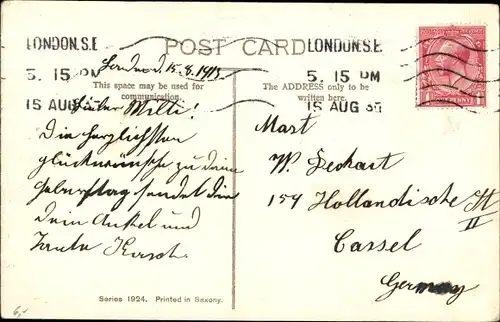 LONDON.S.E
5. 15 PM
15 AUG
POST CARD
LONDON.S.E
5. 15 PM
15 AUG
ONE PENNY
London 15.8.1913
This space may be used for
communication.
The ADDRESS only to be
written here.
Lieber Willi!
Die herzlichsten
glückwünsche zu deim
geburtstag sendet dir
dein Onkel und
Tante
Mast
W.
154 Hollandische
II
Cassel
Germany
Series 1924. Printed in Saxony.